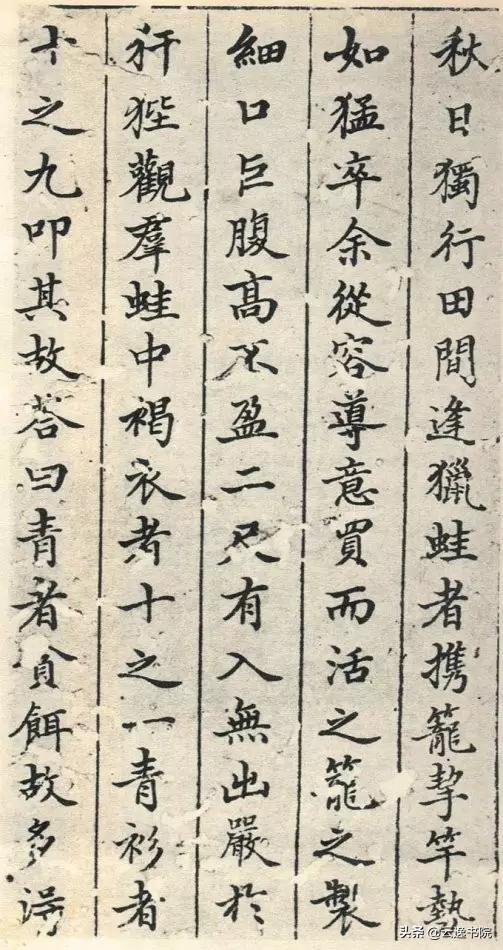 秋日獨行田間逢獵蛙者携籠挈竿勢
如猛卒余從容導意買而活之籠之製
細口巨腹高不盈二尺有入無出嚴於
犴狴觀羣蛙中褐衣者十之一青衫者
十之九叩其故荅曰青者貪餌故多得
头条@云逸书院